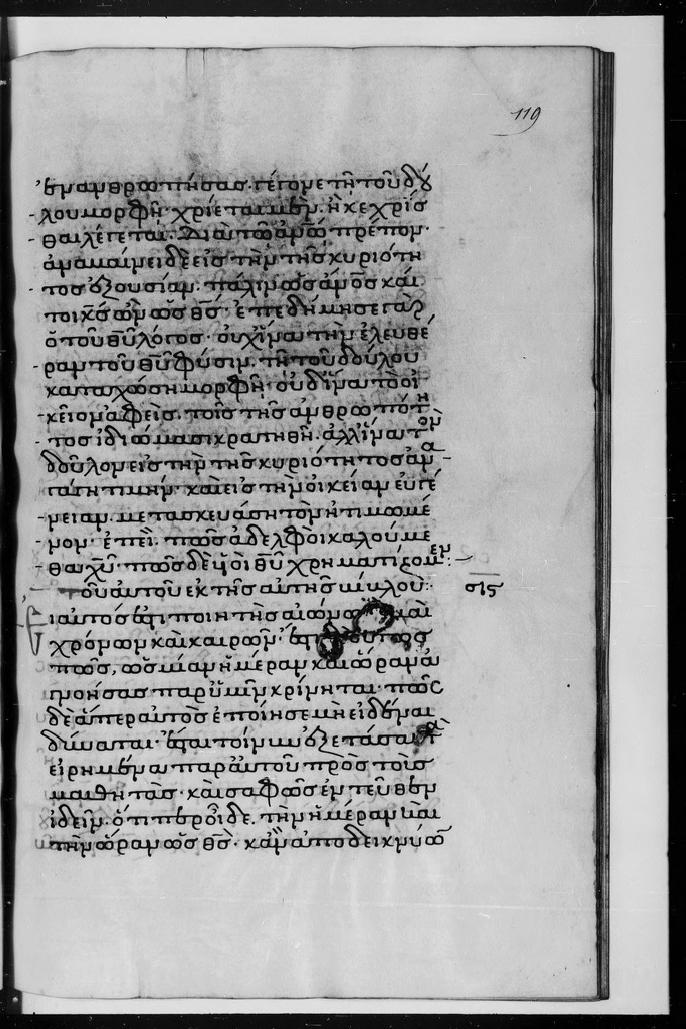 119
ἐνανθρωπήσας. γέγονε τῇ τοῦ δού
λου μορφῇ· χρίεται μὲν. ἢ κεχρῖσ
θαι λέγεται. διὰ τὸ ἀνῶ πρέπον·
ἀναμαι μει δὲ εἰς τὴν τῆς κυριότη
τος ἐξουσίαν. πάλιν ὡς ἀνος καὶ
τοικ ὡς θς· ἐπεδήμησε γὰρ
ὁ τοῦ θῦ λόγος· οὐχ ἵνα τὴν ἐλευθέ
ραν τοῦ θῦ φύσιν. τῇ τοῦ δούλου
καταχώσῃ μορφῇ· οὐδ' ἵνα τὸ οἰ
κεῖον ἀφεὶς. τοῖς τῆς ἀνθρωπότη
τος ἰδιώμασι κρατηθῇ. ἀλλ' ἵνα τὸν
δοῦλον εἰς τὴν τῆς κυριότητος ἀνα
γάγῃ τιμήν· καὶ εἰς τὴν οἰκείαν εὐγέ
νειαν. μετασκευάσῃ τὸν ἠτιμωμέ
νον· ἐπεὶ. πῶς ἀδελφοὶ καλούμε
θα χῦ· πῶς δὲ υἱοὶ θῦ χρηματίζομεν:
τοῦ αὐτοῦ ἐκ τῆς αὐτῆς βίβλου:
σις
εἰ αὐτός ἐστι ποιητὴς αἰώνων καὶ
χρόνων καὶ καιρῶν· ἐστι δὲ οὕτως
πῶς, ὡς μίαν ἡμέραν καὶ ὥραν ἀ
γνοήσας παρ' ὑμῖν κρίνηται· πῶς
δὲ ἅπερ αὐτὸς ἐποίησε μὴ εἰδέναι
δύναται· ἔστι τοίνυν ἐξετάσαι τὰ
εἰρημένα παρ' αὐτοῦ πρὸς τοὺς
μαθητὰς· καὶ σαφῶς ἐντεῦθεν
ἰδεῖν. ὅτιπερ οἶδε. τὴν ἡμέραν καὶ
τὴν ὥραν ὡς θς· κἂν ἀποδεικνύων